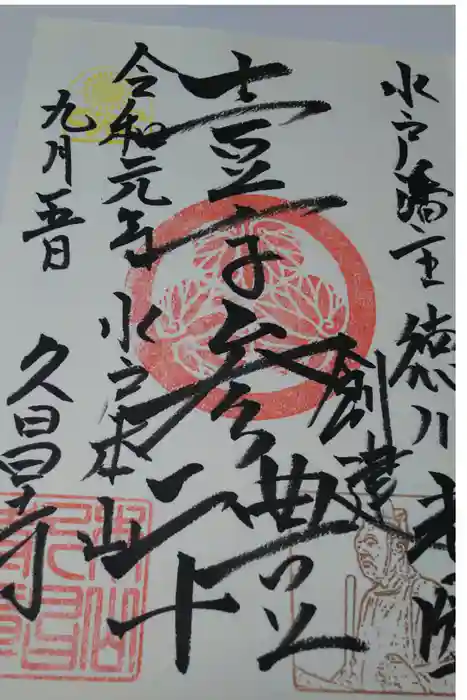 水戸藩主 徳川光圀
創建
壹字参禮
令和元年
九月五日
水戸本山
久昌寺